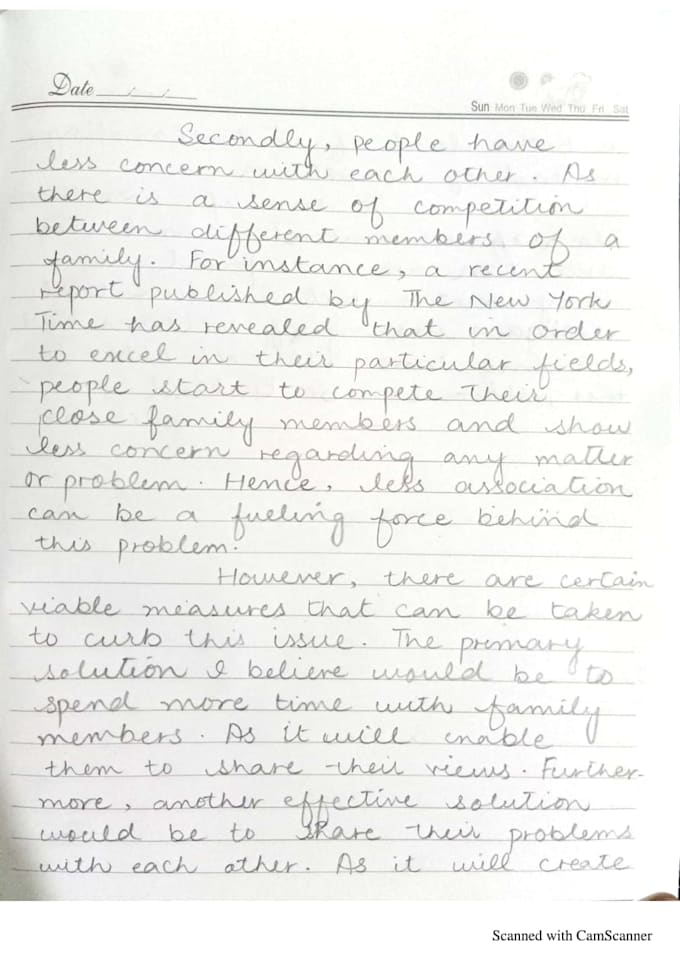 Date
Sun Mon Tue Wed Thu Fri Sat
Secondly, people have
less concern with each other. As
there is a sense of competition
between different members of a
family. For instance, a recent
report published by The New York
Time has revealed that in order
to excel in their particular fields,
people start to compete their
close family members and show
less concern regarding any matter
or problem. Hence, less association
can be a fueling force behind
this problem.
However, there are certain
viable measures that can be taken
to curb this issue. The primary
solution I believe would be to
spend more time with family
members. As it will enable
them to share their views. Further-
more, another effective solution
would be to share their problems
with each other. As it will create
Scanned with CamScanner